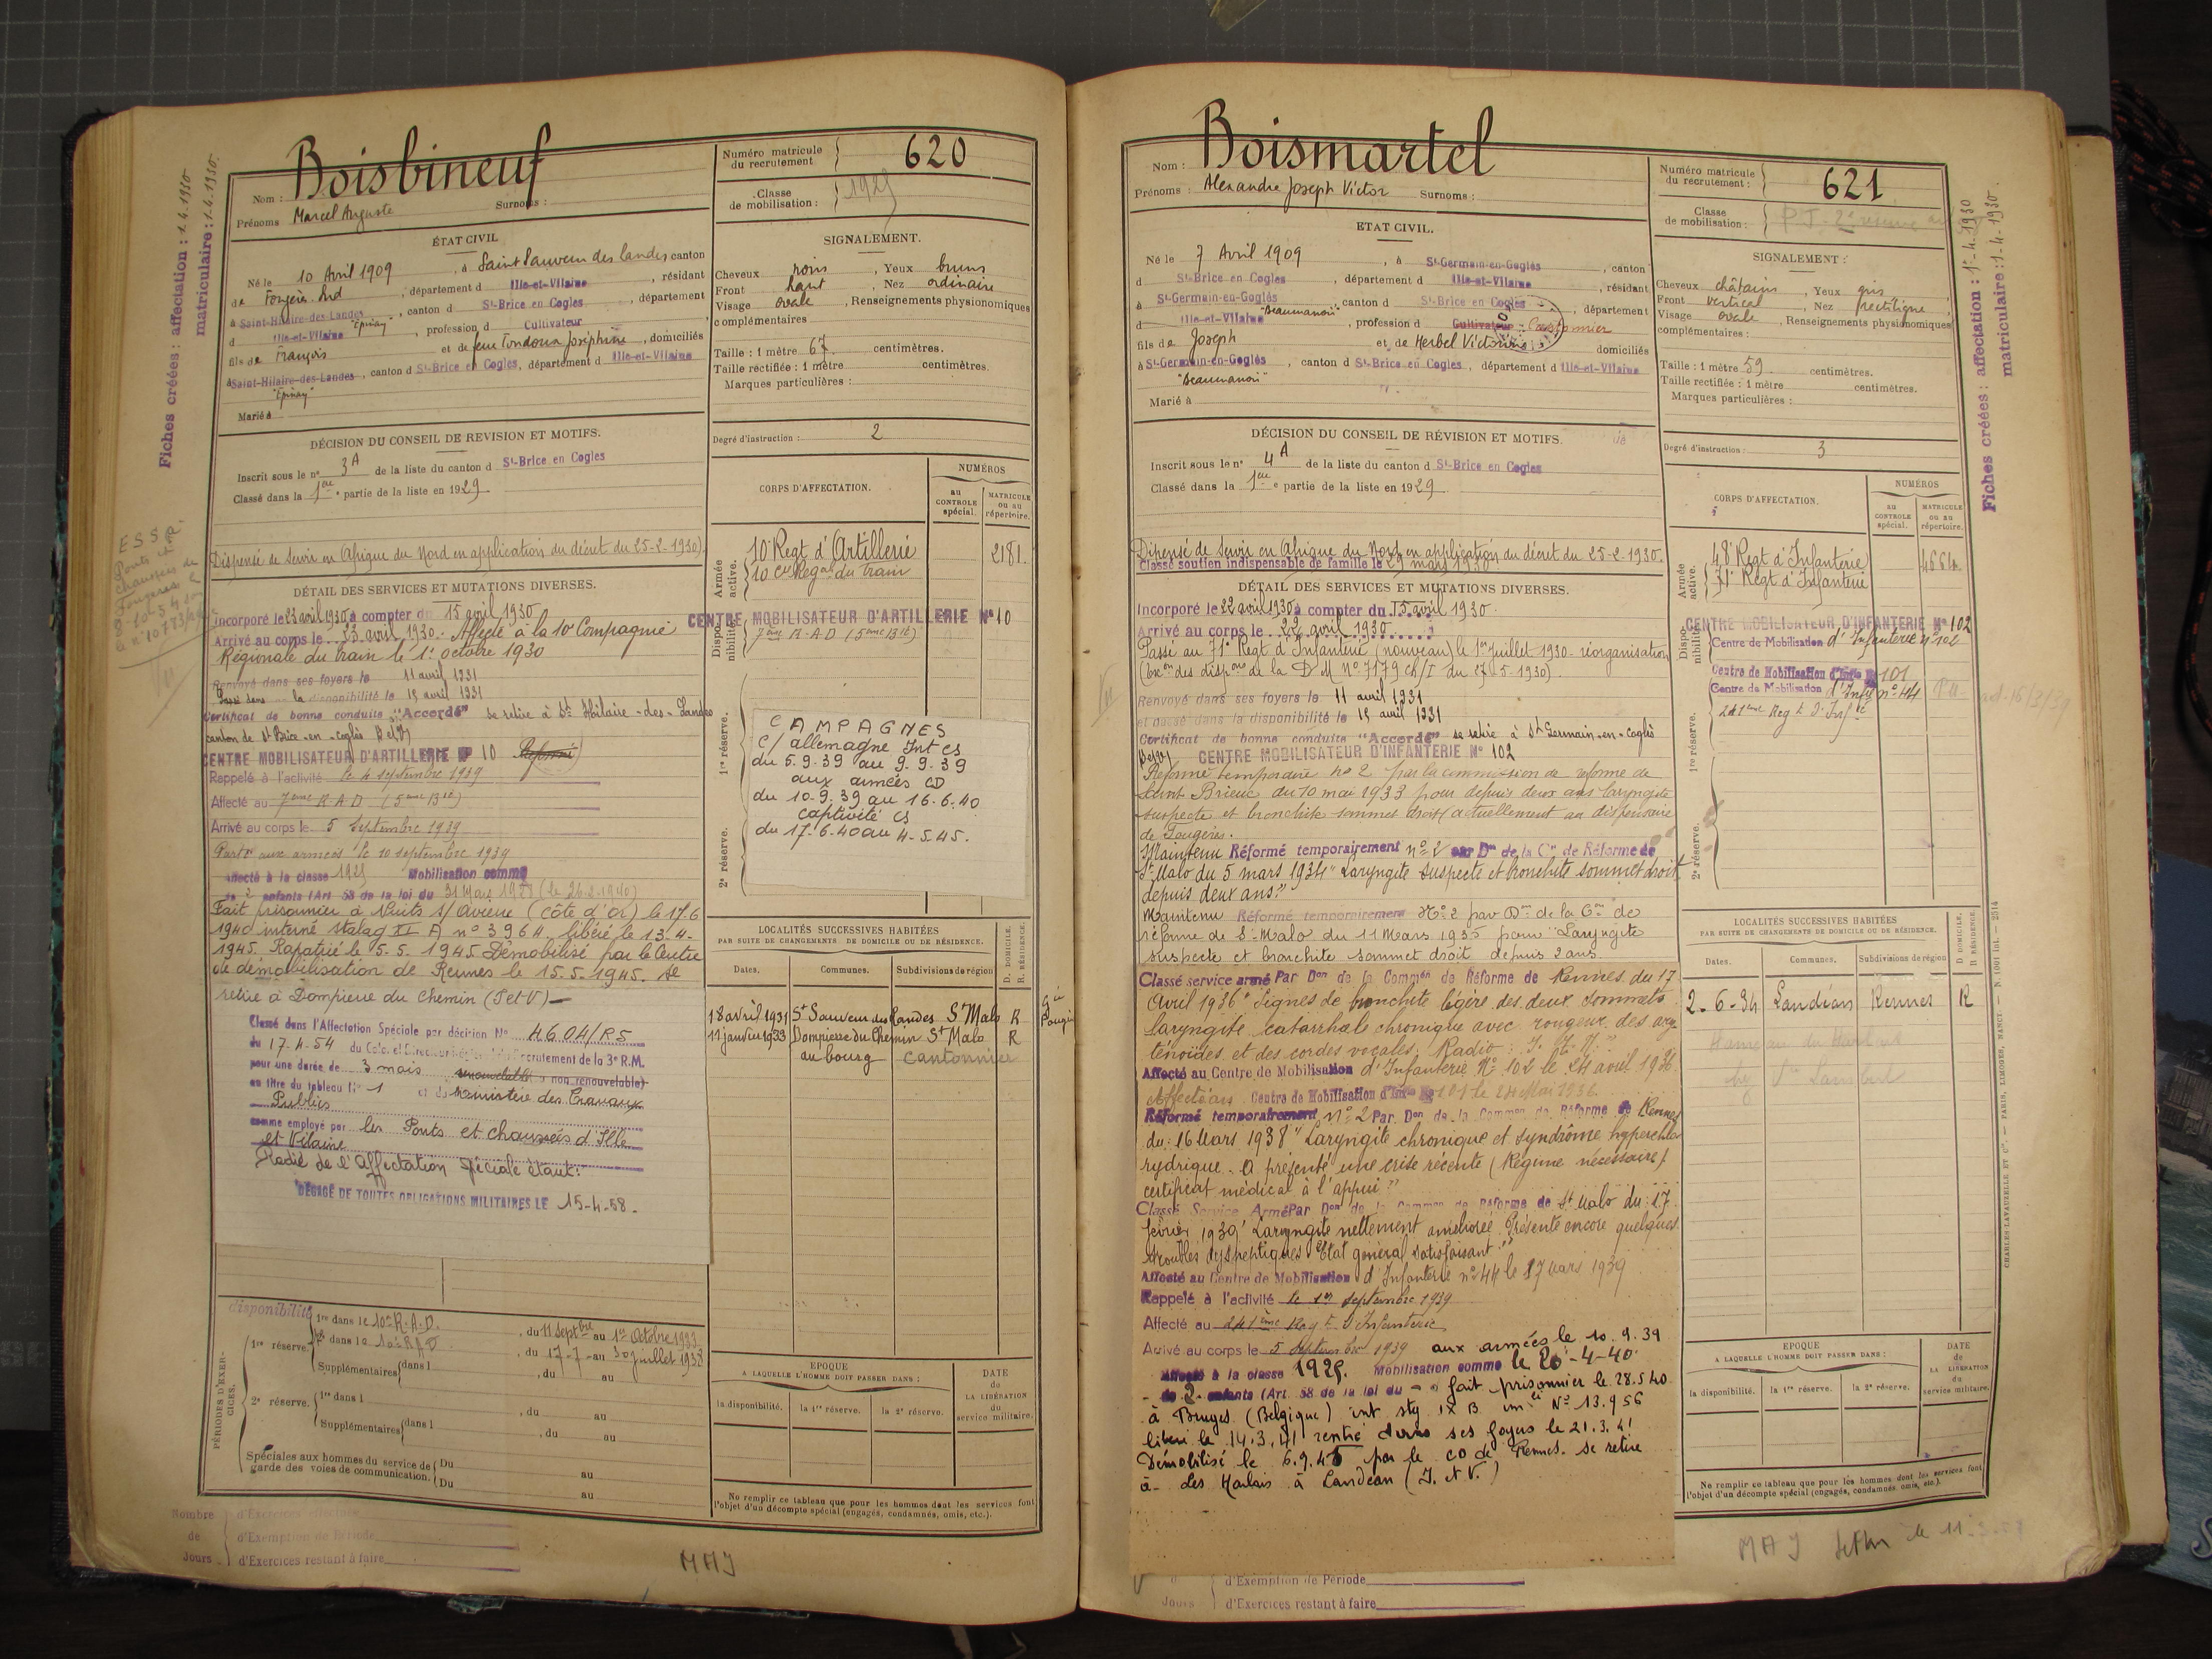 Fiches créées : affectation : 1.4.1930
matriculaire : 1.4.1930.
Nom : Boisbineuf
Prénoms Marcel Auguste Surnoms :
Numéro matricule du recrutement 620
Classe de mobilisation : 1929
ÉTAT CIVIL
Né le 10 Avril 1909, à Saint Sauveur des Landes canton
de Fougères Sud, département d Ille-et-Vilaine, résidant
à Saint-Hilaire-des-Landes, canton d St-Brice en Cogles, département
d Ille-et-Vilaine "Epinay", profession d Cultivateur
fils de François et de feue Tondoux Joséphine, domiciliés
à Saint-Hilaire-des-Landes, canton d St-Brice en Cogles, département d Ille-et-Vilaine
"Epinay"
Marié à
SIGNALEMENT.
Cheveux noirs, Yeux bruns
Front haut, Nez ordinaire
Visage ovale, Renseignements physionomiques
complémentaires
Taille : 1 mètre 67 centimètres.
Taille rectifiée : 1 mètre centimètres.
Marques particulières :
Degré d'instruction : 2
DÉCISION DU CONSEIL DE REVISION ET MOTIFS.
Inscrit sous le n° 3A de la liste du canton d St-Brice en Cogles
Classé dans la 1ère partie de la liste en 1929
Dispensé de servir en Afrique du Nord en application du décret du 25-2-1930)
CORPS D'AFFECTATION.
NUMÉROS
au CONTROLE spécial.
MATRICULE ou au répertoire.
Armée active.
10e Regt d'Artillerie 2181
10e Cie Regale du train
Disponibilité
CENTRE MOBILISATEUR D'ARTILLERIE N° 10
7ème R.A.D (5ème Bie)
1re réserve.
2e réserve.
CAMPAGNES
C/ allemagne Int CS
du 5.9.39 au 9.9.39
aux armées CD
du 10.9.39 au 16.6.40
captivité CS
du 17.6.40 au 4.5.45.
DÉTAIL DES SERVICES ET MUTATIONS DIVERSES.
Incorporé le 23 avril 1930 à compter du 15 avril 1930
Arrivé au corps le 23 avril 1930. Affecté à la 10e Compagnie
Régionale du train le 1er octobre 1930
Renvoyé dans ses foyers le 11 avril 1931
Passé dans la disponibilité le 15 avril 1931
Certificat de bonne conduite "Accordé" se retire à St Hilaire-des-Landes
canton de St Brice-en-Coglès
CENTRE MOBILISATEUR D'ARTILLERIE N° 10
Rappelé à l'activité le 4 septembre 1939
Affecté au 7ème R.A.D (5ème Bie)
Arrivé au corps le 5 Septembre 1939
Parti aux armées le 10 septembre 1939
Affecté à la classe 1925 Mobilisation comme
de 2 enfants (Art. 58 de la loi du 31 Mars 1928 (le 26.2.1940)
Fait prisonnier à Nuits s/ (côte d'or) le 17.6
1940 interné stalag XI A n° 3964. libéré le 13-4-
1945. Rapatrié le 5.5.1945. Démobilisé par le Centre
de démobilisation de Rennes le 15.5.1945. se
retire à Dompierre du Chemin (I et V)
Classé dans l'Affectation Spéciale par décision N° 4604/RS
du 17.4.54 du Recrutement de la 3e R.M.
pour une durée de 3 mois renouvelable, non renouvelable)
au titre du tableau N° 1 et du Ministère des Travaux
Publics
comme employé par les Ponts et chaussées d'Ille
et Vilaine
Radié de l'affectation spéciale étant :
DÉGAGÉ DE TOUTES OBLIGATIONS MILITAIRES LE 15-4-58.
LOCALITÉS SUCCESSIVES HABITÉES
PAR SUITE DE CHANGEMENTS DE DOMICILE OU DE RÉSIDENCE.
Dates. Communes. Subdivisions de région
D. DOMICILE. R. RÉSIDENCE.
18 avril 1931 St Sauveur des Landes St Malo R
11 janvier 1933 Dompierre du Chemin St Malo R
au bourg cantonnier
PÉRIODES D'EXERCICES.
disponibilité
1re réserve. 1re dans le 10e R.A.D., du 11 Septbre au 1er Octobre 1933
2e dans le 10e R.A.D., du 17-7 au 30 juillet 1938
Supplémentaires dans l, du au
2e réserve. 1re dans l, du au
Supplémentaires dans l, du au
Spéciales aux hommes du service de garde des voies de communication. Du au
Du au
EPOQUE
A LAQUELLE L'HOMME DOIT PASSER DANS :
la disponibilité. la 1re réserve. la 2e réserve.
DATE de LA LIBÉRATION du service militaire.
Ne remplir ce tableau que pour les hommes dont les services font
l'objet d'un décompte spécial (engagés, condamnés, omis, etc.).
Nombre de Jours
d'Exercices
d'Exemption de Période
d'Exercices restant à faire
MAJ
Nom : Boismartel
Prénoms : Alexandre Joseph Victor Surnoms :
Numéro matricule du recrutement : 621
Classe de mobilisation :
Fiches créées : affectation : 1-4-1930
matriculaire : 1-4-1930.
ETAT CIVIL.
Né le 7 Avril 1909, à St-Germain-en-Coglès, canton
d St-Brice en Cogles, département d Ille-et-Vilaine, résidant
à St-Germain-en-Coglès, canton d St-Brice en Cogles, département
d Ille-et-Vilaine "Beaumanoir", profession d Cultivateur - Cantonnier
fils de Joseph et de Herbel Victorine domiciliés
à St-Germain-en-Coglès, canton d St-Brice en Cogles, département d Ille-et-Vilaine
"Beaumanoir"
Marié à
SIGNALEMENT :
Cheveux châtains, Yeux gris
Front vertical, Nez rectiligne
Visage ovale, Renseignements physionomiques
complémentaires :
Taille : 1 mètre 59 centimètres.
Taille rectifiée : 1 mètre centimètres.
Marques particulières :
Degré d'instruction : 3
DÉCISION DU CONSEIL DE RÉVISION ET MOTIFS.
Inscrit sous le n° 4A de la liste du canton d St-Brice en Cogles
Classé dans la 1ère partie de la liste en 1929
Dispensé de servir en Afrique du Nord en application du décret du 25-2-1930.
Classé soutien indispensable de famille le 29 mars 1930
CORPS D'AFFECTATION.
NUMÉROS
AU CONTROLE spécial.
MATRICULE ou au répertoire.
Armée active.
48e Regt d'Infanterie
71e Régt d'Infanterie
Disponibilité
CENTRE MOBILISATEUR D'INFANTERIE N° 102
Centre de Mobilisation d'Infanterie n° 102
Centre de Mobilisation d'Infie 101
Centre de Mobilisation d'Infie n° 44
241ème Regt d'Infie
1re réserve.
2e réserve.
DÉTAIL DES SERVICES ET MUTATIONS DIVERSES.
Incorporé le 22 avril 1930 à compter du 15 avril 1930.
Arrivé au corps le 22 avril 1930
Passé au 71e Régt d'Infanterie (nouveau) le 1er Juillet 1930 - réorganisation
(Exon des dispons de la D M N° 7179 Ch/I du 27.5.1930).
Renvoyé dans ses foyers le 11 avril 1931
et passé dans la disponibilité le 15 avril 1931
Certificat de bonne conduite "Accordé" se retire à St Germain-en-Coglès
CENTRE MOBILISATEUR D'INFANTERIE N° 102
Réformé temporaire no 2 par la commission de réforme de
Saint Brieuc du 10 mai 1933 pour depuis deux ans laryngite
suspecte et bronchite sommet droit (actuellement au dispensaire
de Fougères.
Maintenu Réformé temporairement n° 2 par Don de la Con de Réforme de
St Malo du 5 mars 1934 "Laryngite suspecte et bronchite sommet droit
depuis deux ans."
Maintenu Réformé temporairement N° 2 par Don de la Con de
réforme de St Malo du 11 Mars 1935 pour "Laryngite
suspecte et bronchite sommet droit depuis 2 ans.
Classé service armé Par Don de la Common de Réforme de Rennes du 17
Avril 1936 "Signes de bronchite légère des deux sommets
laryngite catarrhale chronique avec rougeur des ary-
ténoïdes et des cordes vocales. Radio :
Affecté au Centre de Mobilisation d'Infanterie N° 102 le 24 avril 1936
Affecté au Centre de Mobilisation d'Infie 101 le 24 Mai 1936.
Réformé temporairement n° 2 Par Don de la Common de Réforme de Rennes
du 16 Mars 1938 "Laryngite chronique et syndrôme hyperchlo-
rydrique. A présenté une crise récente (Régime nécessaire)
certificat médical à l'appui"
Classé Service Armé Par Don de la Common de Réforme de St Malo du 17
février 1939 "Laryngite nettement améliorée. Présente encore quelques
troubles dyspeptiques. Etat général satisfaisant."
Affecté au Centre de Mobilisation d'Infanterie n° 44 le 17 Mars 1939
Rappelé à l'activité le 1er septembre 1939
Affecté au 241ème Regt d'Infanterie
Arrivé au corps le 5 septembre 1939 aux armées le 10.9.39
Affecté à la classe 1925. Mobilisation comme le 20-4-40
de 2 enfants (Art. 58 de la loi du - fait prisonnier le 28.5.40
à Bruges (Belgique) int stg IX B mle N° 13.956
libéré le 14.3.41 rentré dans ses foyers le 21.3.41
Démobilisé le 6.9.45 par le CD de Rennes. se retire
à - Les Harlais à Landéan (I. et V.)
LOCALITÉS SUCCESSIVES HABITÉES
PAR SUITE DE CHANGEMENTS DE DOMICILE OU DE RÉSIDENCE.
Dates. Communes. Subdivisions de région
D. DOMICILE. R. RÉSIDENCE.
2-6-34 Landéan Rennes R
EPOQUE
A LAQUELLE L'HOMME DOIT PASSER DANS :
la disponibilité. la 1re réserve. la 2e réserve.
DATE DE LA LIBÉRATION du service militaire.
Ne remplir ce tableau que pour les hommes dont les services font
l'objet d'un décompte spécial (engagés, condamnés, omis, etc.).
CHARLES-LAVAUZELLE ET Cie. — PARIS, LIMOGES, NANCY
Jours
d'Exemption de Période
d'Exercices restant à faire
MAJ